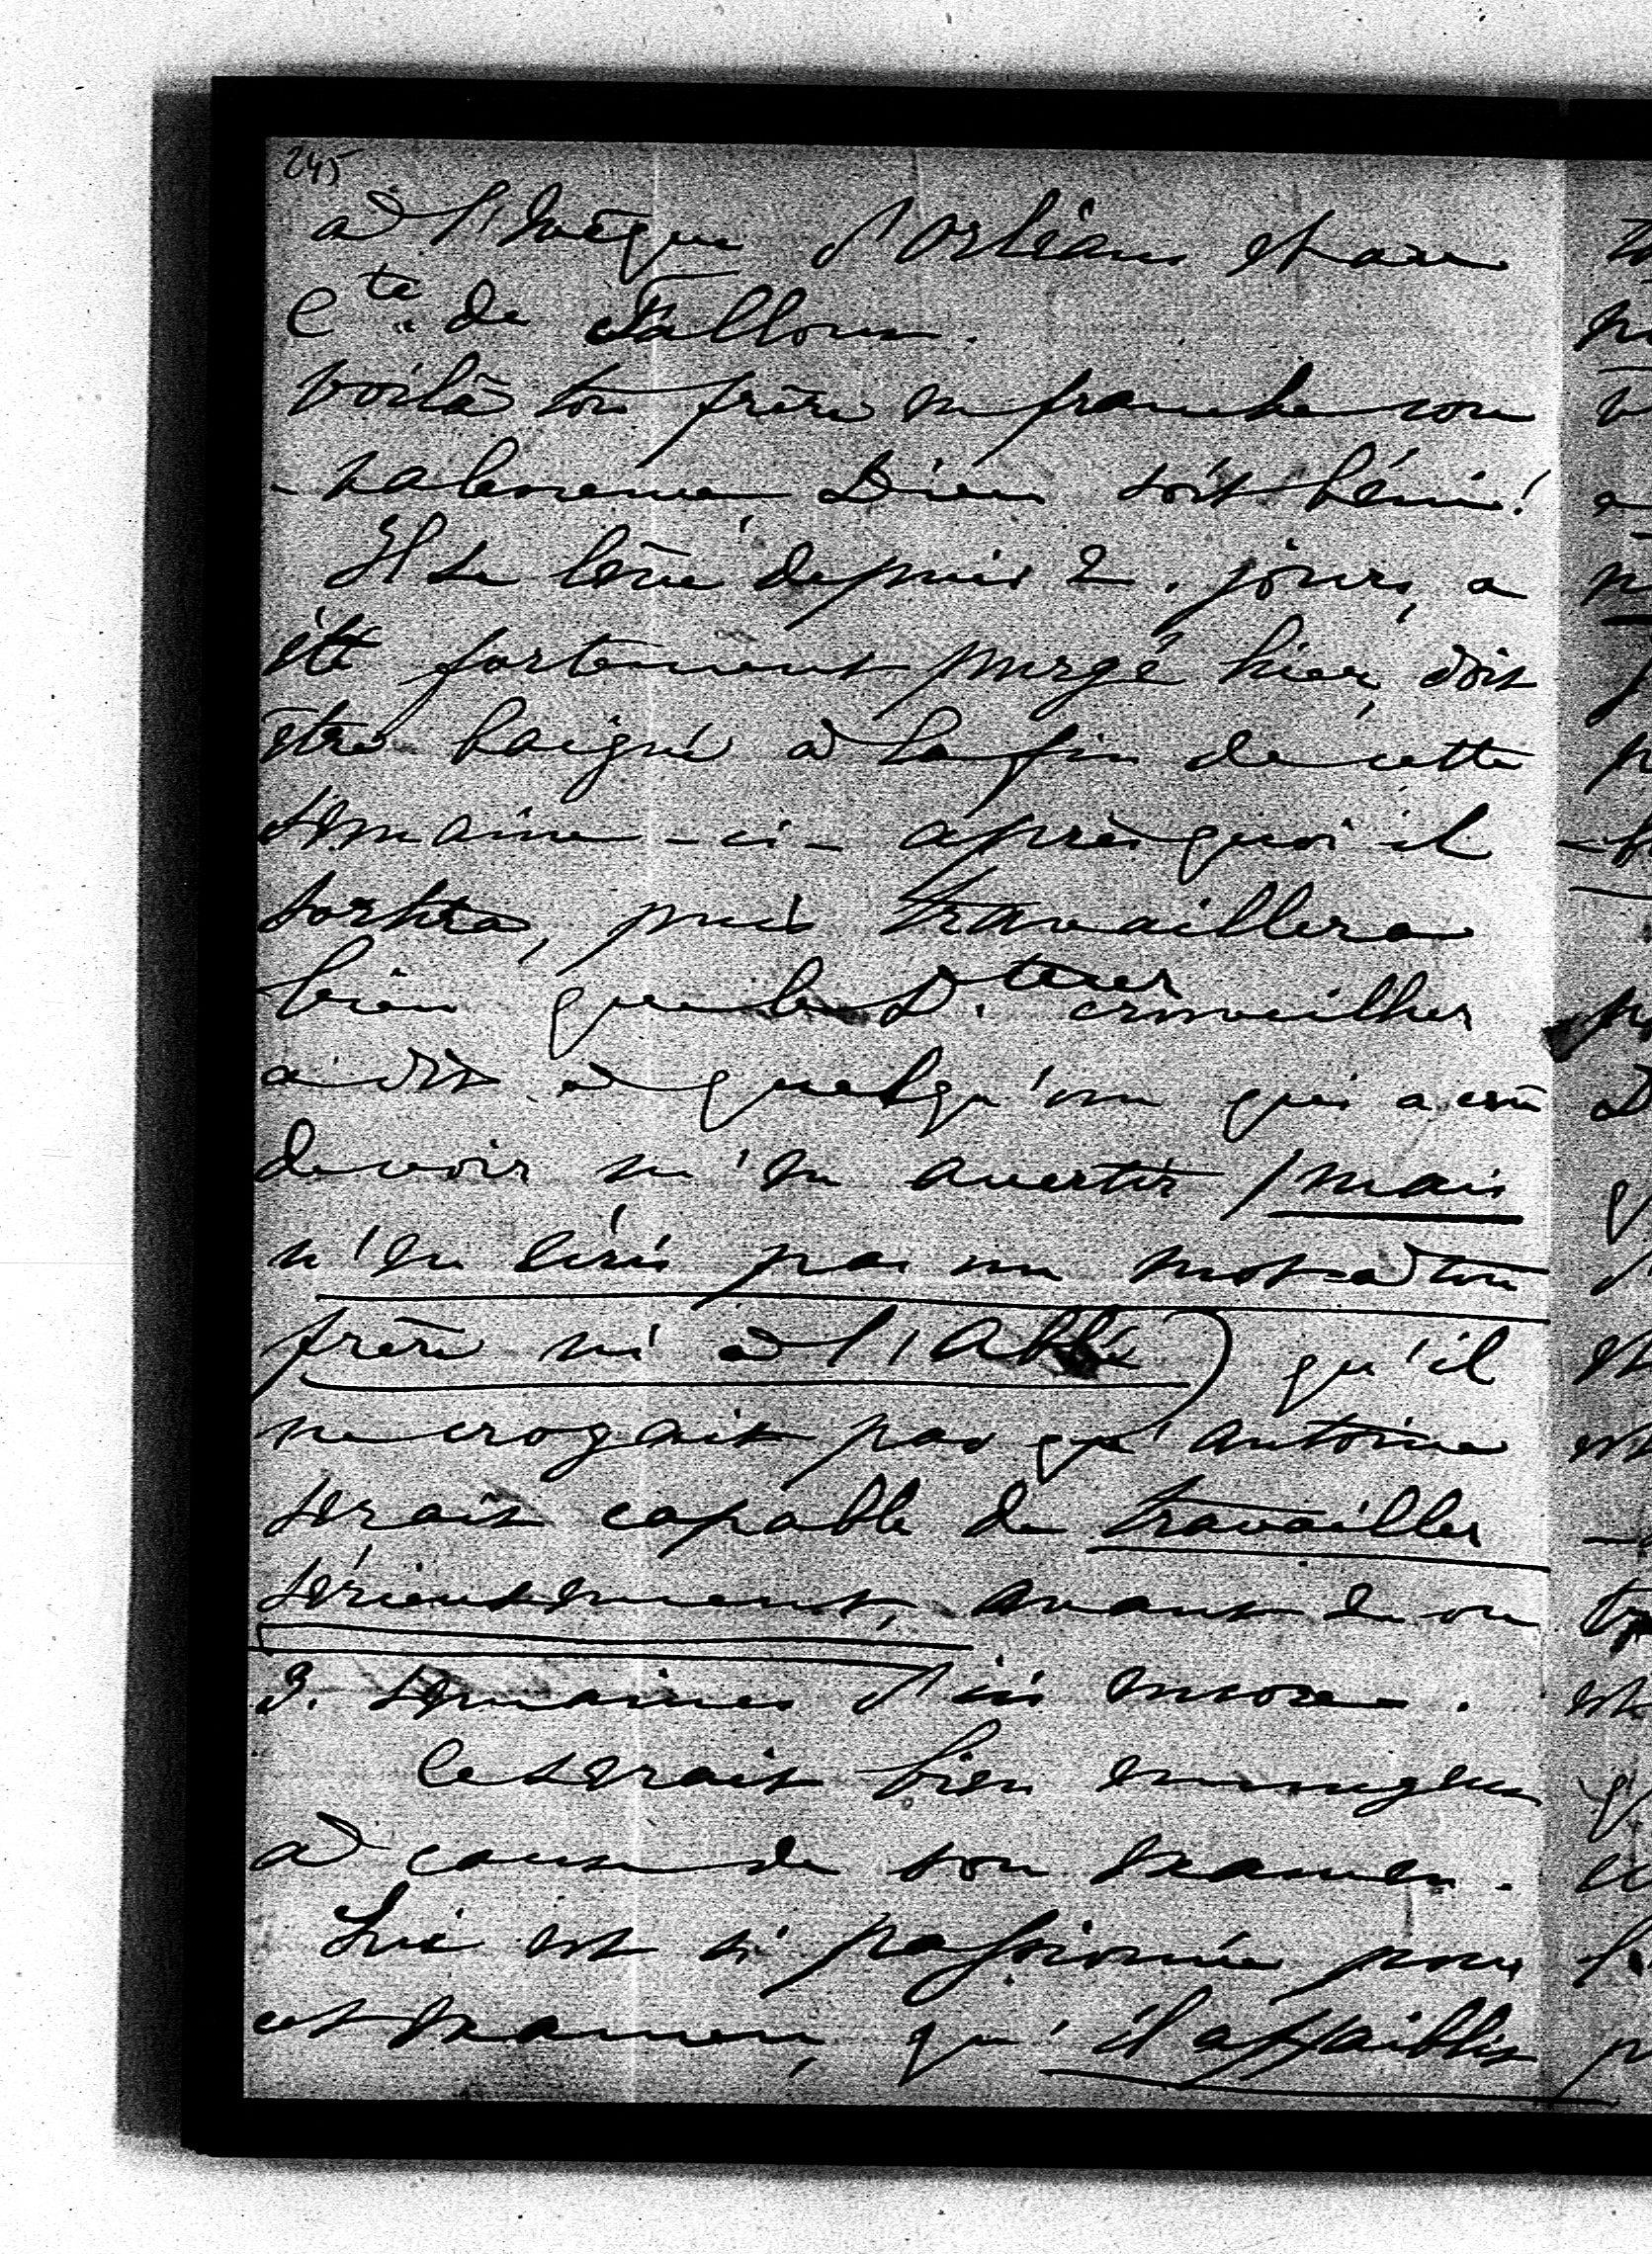 245
à l'Evêque d'Orléans et au
Cte de Falloux.
Voilà ton frère en franche con
-valescence Dieu soit béni!
Il se lève depuis 2. jours, a
été fortement purgé hier, doit
être baigné à la fin de cette
semaine-ci- après quoi il
sortira, puis travaillera
bien que le Dteur Cruveilher
a dit à quelqu'un qui a cru
devoir m'en avertir (mais
n'en écris pas un mot à ton
frère ni à l'Abbé) qu'il
ne croyait pas qu'Antoine
serait capable de travailler
sérieusement, avant 2 ou
3. semaines d'ici encore.
Ce serait bien ennuyeux
à cause de son examen.
Lui est si passionné pour
cet examen, qu'il affaiblit